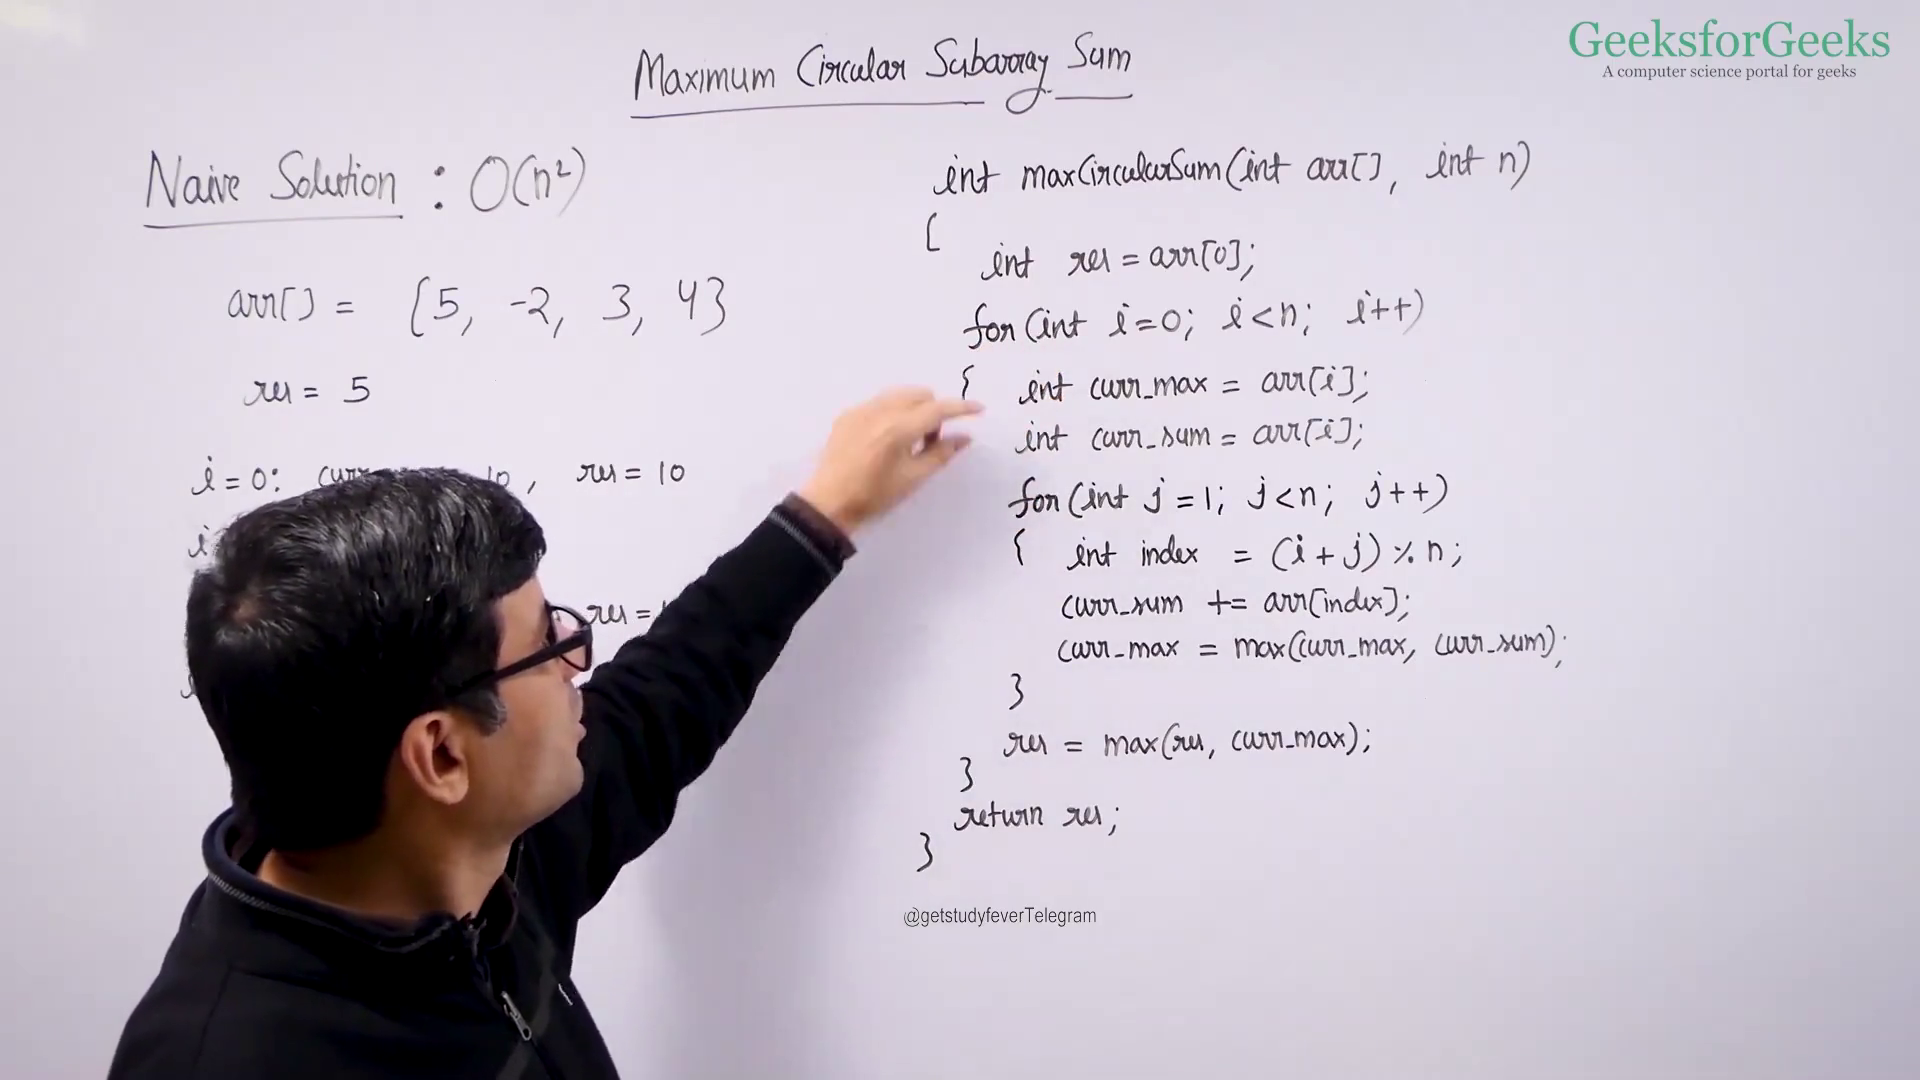 GeeksforGeeks
A computer science portal for geeks
Maximum Circular Subarray Sum
Naive Solution : O(n²)
arr[] = {5, -2, 3, 4}
res = 5
i = 0: 10, res = 10
i
res =
int maxCircularSum(int arr[], int n)
{
int res = arr[0];
for (int i=0; i<n; i++)
{ int curr_max = arr[i];
int curr_sum = arr[i];
for (int j=1; j<n; j++)
{ int index = (i+j) % n;
curr_sum += arr[index];
curr_max = max(curr_max, curr_sum);
}
res = max(res, curr_max);
}
return res;
}
@getstudyfeverTelegram